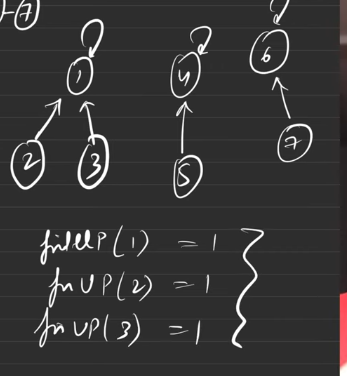 -7
1 4 6
2 3 5 7
findUP(1) = 1
fn UP(2) = 1
fn UP(3) = 1